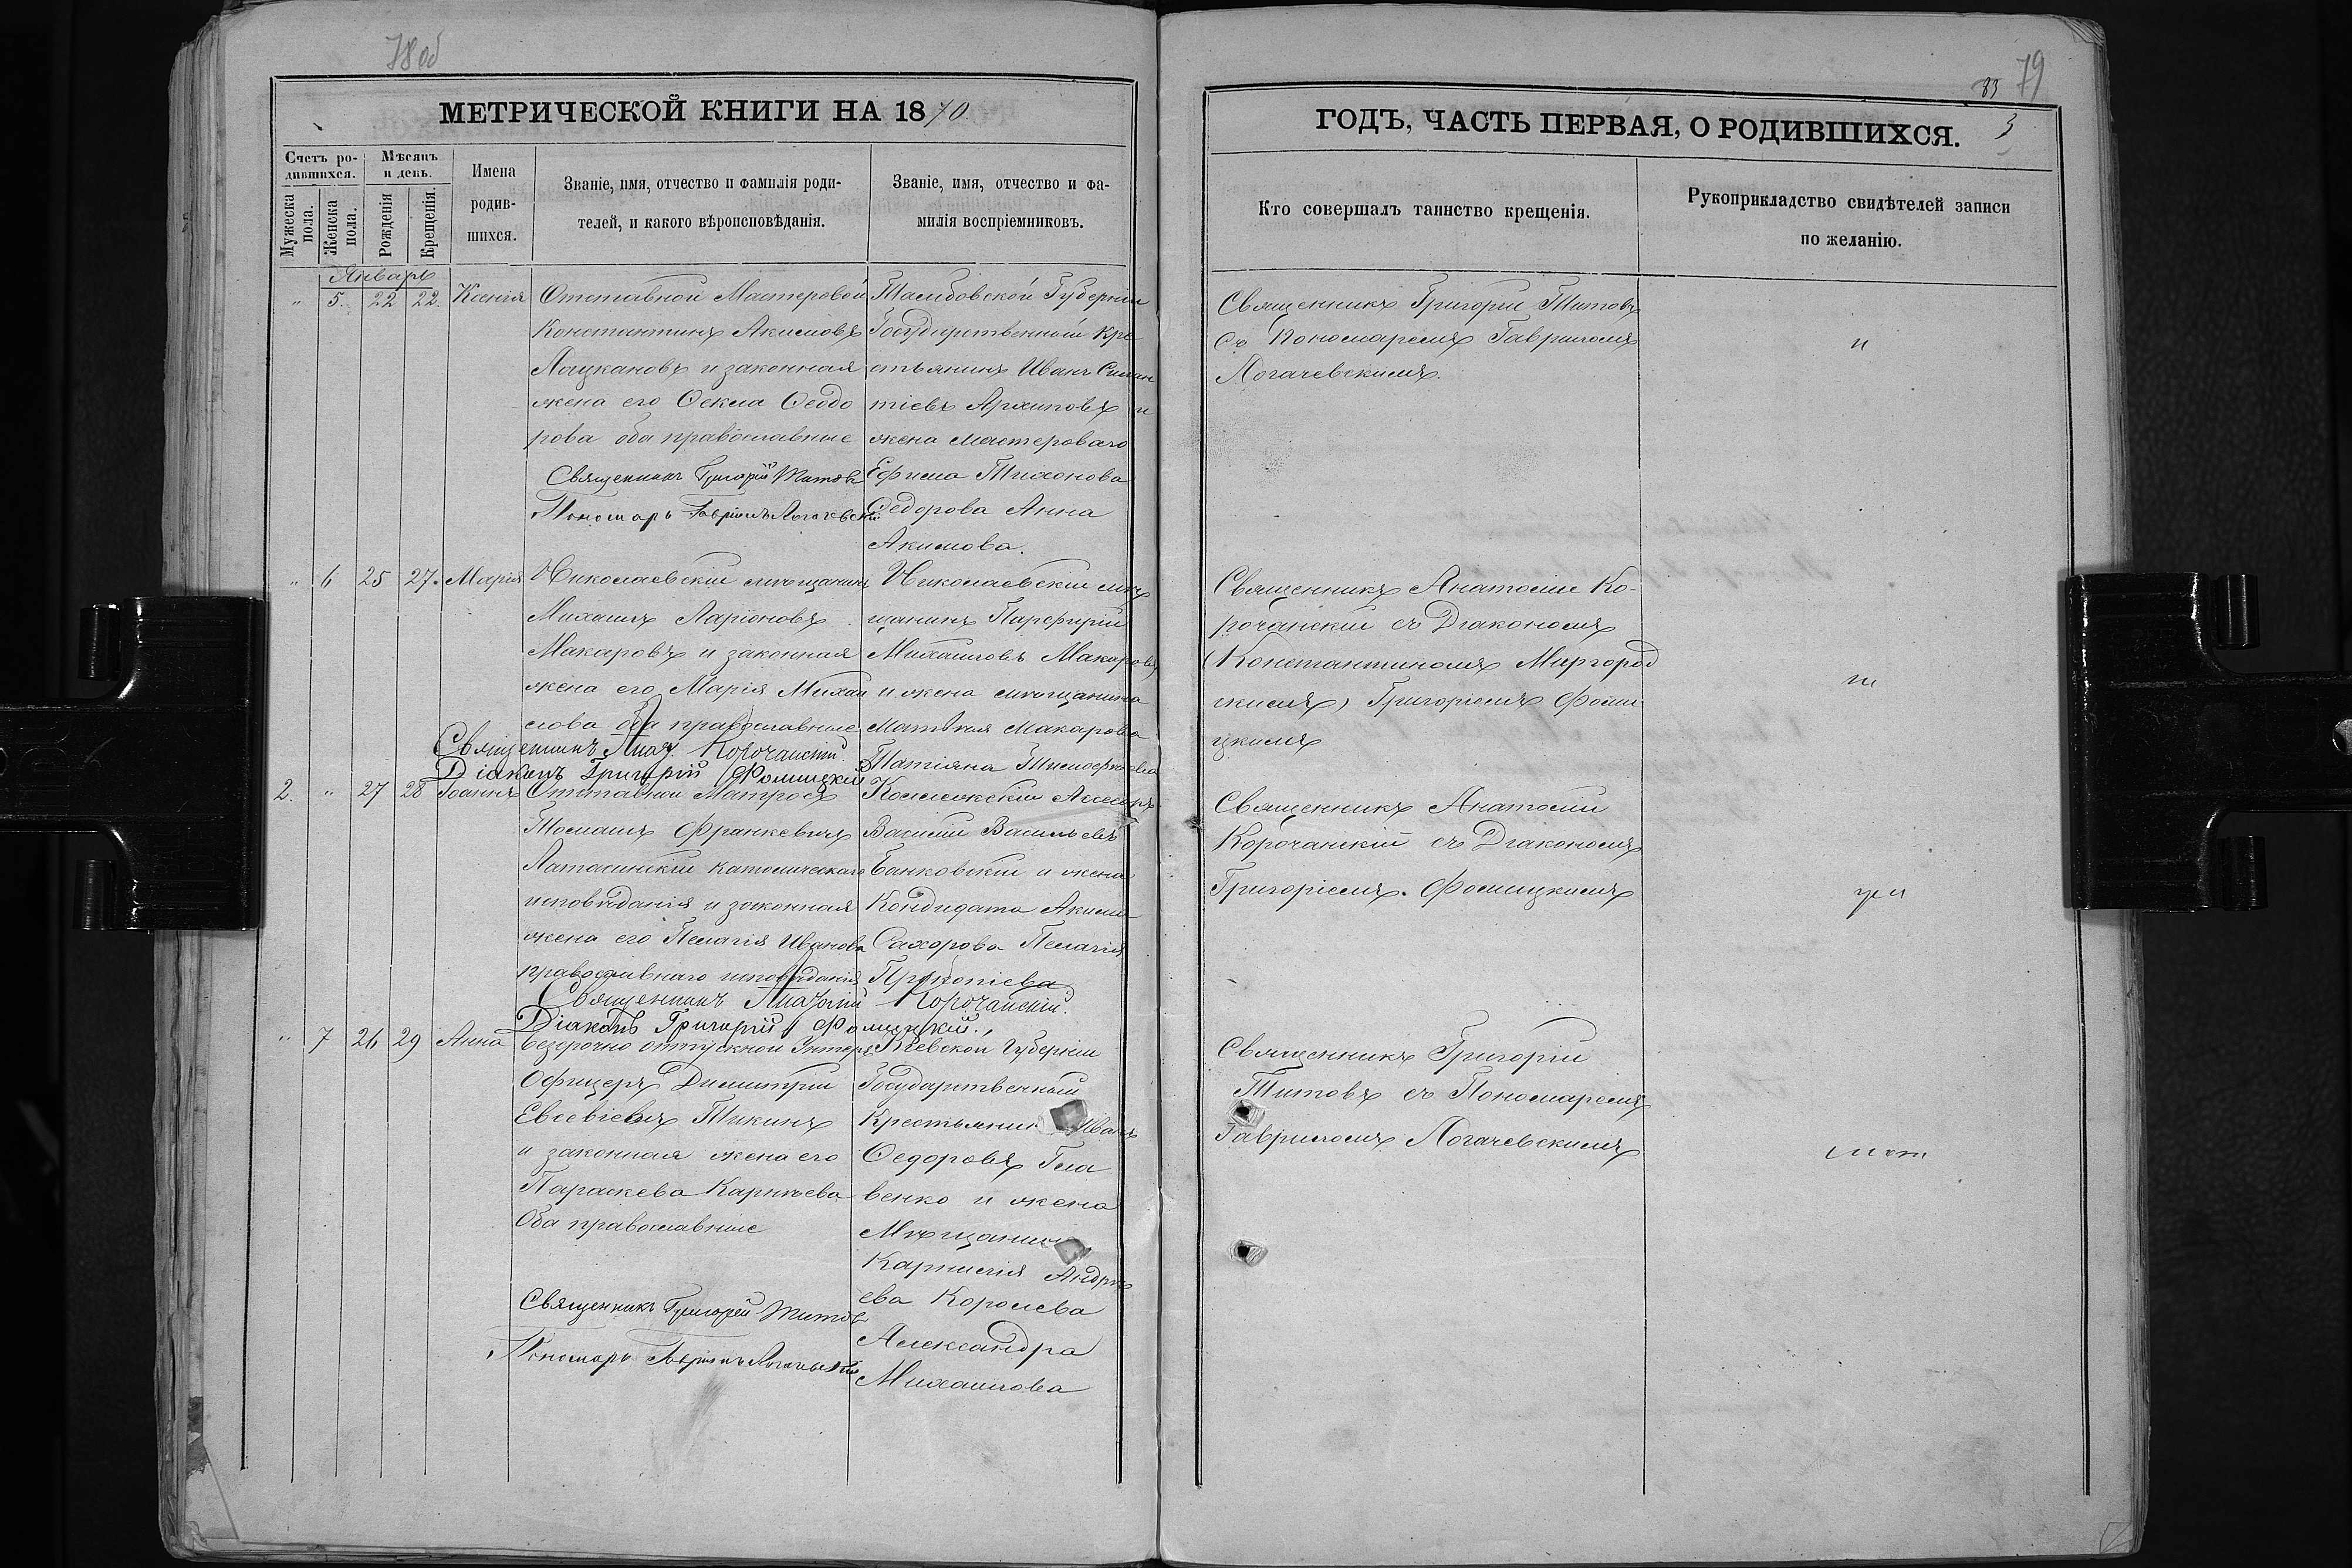 78 об
МЕТРИЧЕСКОЙ КНИГИ НА 1870.
Счетъ ро-
дившихся.
Мѣсяцъ
и день.
Мужеска
пола.
Женска
пола.
Рожденія
Крещенія.
Имена
родив-
шихся.
Званіе, имя, отчество и фамилія роди-
телей, и какого вѣроисповѣданія.
Званіе, имя, отчество и фа-
милія воспріемниковъ.
Январь
" 5. 22 22. Ксенія
Отставной Мастеровой
Константинъ Акимовъ
Лоцкановъ и законная
жена его Ѳекла Ѳеодо
рова оба православные
Священникъ Григорій Титовъ
Пономарь Гавріилъ Логачевскій
Тамбовской Губерніи
Государственный Кре
стьянинъ Иванъ Силан
тіевъ Архиповъ и
жена мастероваго
Ефима Тихонова
Ѳедорова Анна
Акимова.
" 6 25 27. Марія
Николаевскій мѣщанинъ
Михаилъ Ларіоновъ
Макаровъ и законная
жена его Марія Михаи
лова оба православные
Священникъ Анат. Корочанскій.
Діаконъ Григорій Фомицкій
Николаевскій мѣ
щанинъ Парфирій
Михаиловъ Макаровъ
и жена мѣщанина
Матвѣя Макарова
Татіяна Тимофѣева
2. " 27 28 Іоаннъ
Отставной Матросъ
Томашъ Франкевичъ
католическаго
исповѣданія и законная
жена его Пелагія Иванова
православнаго исповѣданія
Священникъ Анатолій Корочанскій.
Діаконъ Григорій Фомицкій.
Коллежскій Ассесоръ
Василій Васильевъ
Банковскій и жена
Кондидата Акима
Сахорова Пелагія
" 7 26 29 Анна
Безсрочно отпускной Унтеръ
Офицеръ Димитрій
Евсевіевъ Тикинъ
и законная жена его
Параскева Карпѣева
Оба православные
Священникъ Григорій Титовъ
Пономарь Гавріилъ Логачевскій
Кіевской Губерніи
Государственный
Крестьянинъ Иванъ
Ѳедоровъ Гла
венко и жена
Мѣщанина
Карнилія Андрѣ
ева Королева
Александра
Михаилова
83 79
ГОДЪ, ЧАСТЬ ПЕРВАЯ, О РОДИВШИХСЯ. 3
Кто совершалъ таинство крещенія.
Рукоприкладство свидѣтелей записи
по желанію.
Священникъ Григорій Титовъ
съ Пономаремъ Гавриломъ
Логачевскимъ.
Священникъ Анатолій Ко-
рочанскій съ Діакономъ
Константиномъ Миргород
скимъ, Григоріемъ Фоми
цкимъ
Священникъ Анатолій
Корочанскій съ Діакономъ
Григоріемъ Фомицкимъ
Священникъ Григорій
Титовъ съ Пономаремъ
Гавриломъ Логачевскимъ